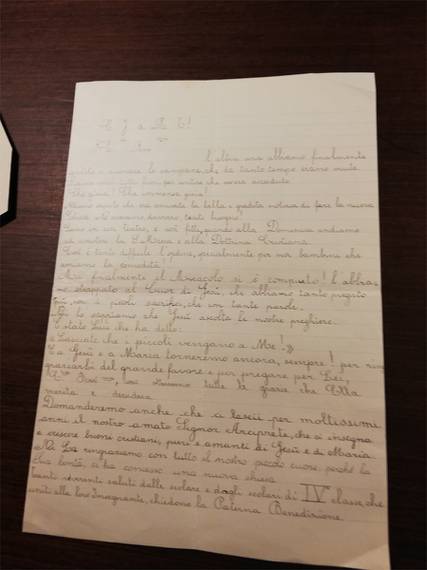 l'altra sera abbiamo finalmente
sentito a suonare le campane, che da tanto tempo erano mute.
tutti fuori per sentire che aveva accaduto.
Che gioia! Che immensa gioia!
Abbiamo saputo che era arrivata la bella e gradita notizia di fare la nuova
Chiesa. Ne avevamo davvero tanto bisogno!
Siamo in un teatro, e così fitti, quando alla Domenica andiamo
ad ascoltar la S. Messa e alla Dottrina Cristiana.
Così è tanto difficile l'ordine, specialmente per noi bambini che
amiamo la comodità.
Ma finalmente il Miracolo si è compiuto! l'abbia-
mo strappato al Cuor di Gesù, che abbiamo tanto pregato
noi piccoli che con tante parole.
Noi lo sapevamo che Gesù ascolta le nostre preghiere.
È stato Gesù che ha detto:
"Lasciate che i piccoli vengano a Me!"
E a Gesù e a Maria torneremo ancora, sempre! per rin-
graziarli del grande favore e per pregare per Lei,
tutte le grazie che Ella
merita e desidera.
Domanderemo anche che ci lasci per moltissimi
anni il nostro amato Signor Arciprete, che ci insegna
a crescere buoni cristiani, puri e amanti di Gesù e di Maria.
La ringraziamo con tutto il nostro piccolo cuore, perchè la
Sua bontà, ci ha concesso una nuova chiesa.
Tanti riverenti saluti dalle scolare e dagli scolari di IV classe, che
uniti alla loro Insegnante, chiedono la Paterna Benedizione.